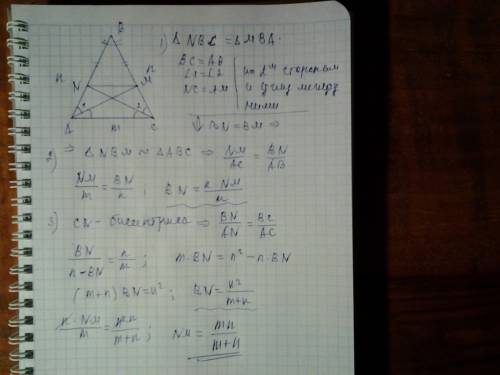 B
n
n
N
M
A
m
C
1) Δ NBC = Δ MBA.
BC = AB
∠1 = ∠2
NC = AM
по 2м сторонам
и углу между
ними
⇓ BN = BM ⇒
2) ⇒ Δ NBM ∾ Δ ABC ⇒ NM/AC = BN/AB
NM/m = BN/n ; BN = n·NM/m
3) CN - биссектриса ⇒ BN/AN = BC/AC
BN/n-BN = n/m ; m·BN = n² - n·BN
(m+n) BN = n² ; BN = n²/m+n
n·NM/m = n·n/m+n ; NM = mn/m+n